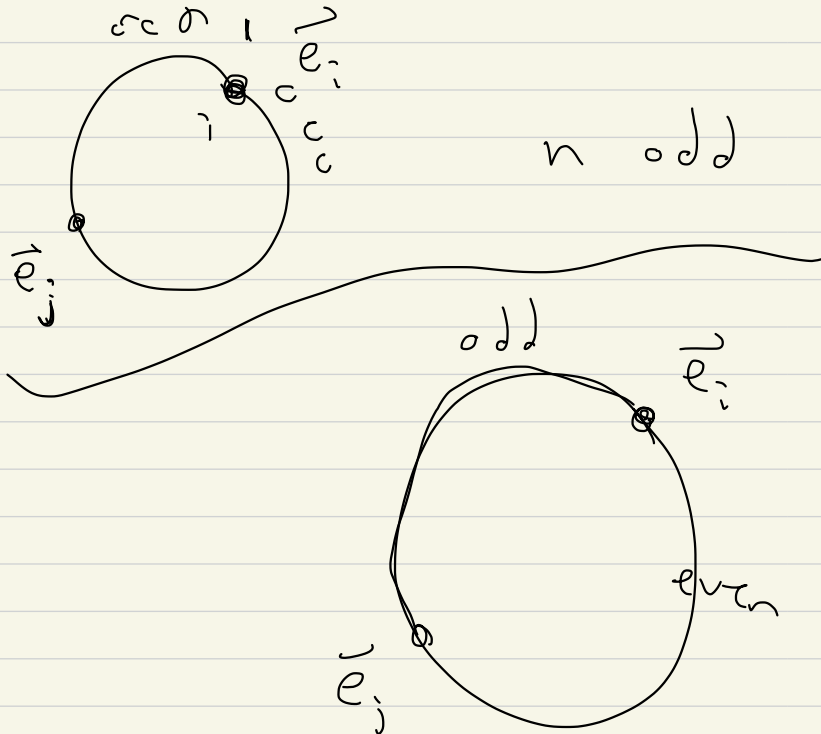 e⃗ᵢ
i
n odd
e⃗ⱼ
odd
e⃗ᵢ
even
e⃗ⱼ